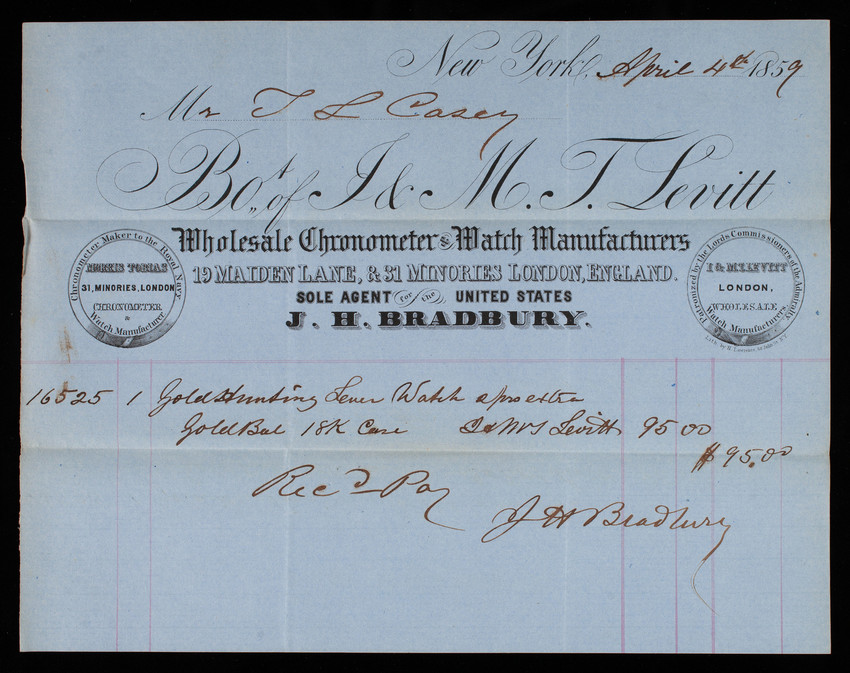 New York, April 4th 1859
Mr T L Casey
Bot. of I & M. T. Levitt
Wholesale Chronometer & Watch Manufacturers
19 MAIDEN LANE, & 31 MINORIES LONDON, ENGLAND.
SOLE AGENT for the UNITED STATES
J. H. BRADBURY.
Chronometer Maker to the Royal Navy
MORRIS TOBIAS
31, MINORIES, LONDON
CHRONOMETER
&
Watch Manufacturer
Patronized by the Lords Commissioners of the Admiralty
I & M.T. LEVITT
LONDON,
WHOLESALE
Watch Manufacturers
16525 1 Gold Hunting Lever Watch extra
Gold Bal 18K Case Levitt 95 00
$95.00
Rec'd Pay
J H Bradbury